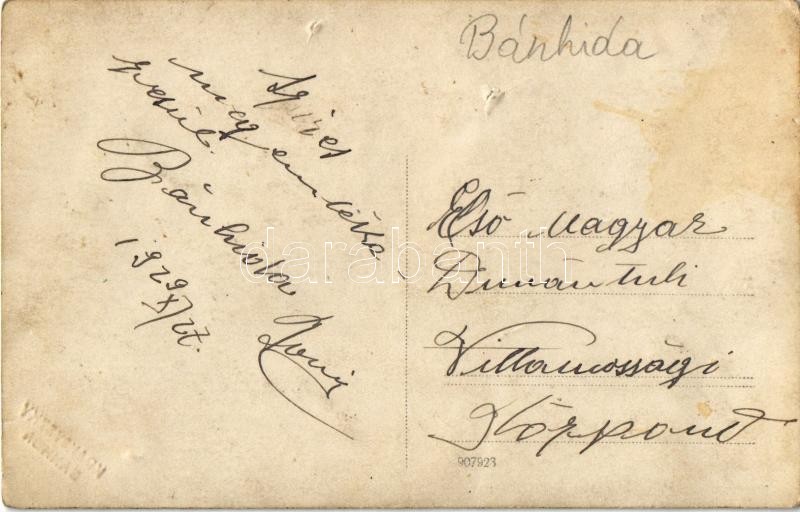 Bánhida
Szives
meg emléke
zésül.
Bánhida
1929 X/27.
Első Magyar
Dunántuli
Villamossági
Központ
907923
darabanth